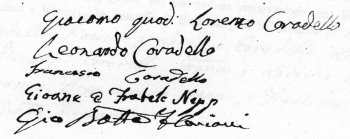 Giacomo quod: Lorenzo Coradello
Leonardo Coradello
Francesco Coradello
Gioane e Fratelo Nepp
Gio Batta Floriani